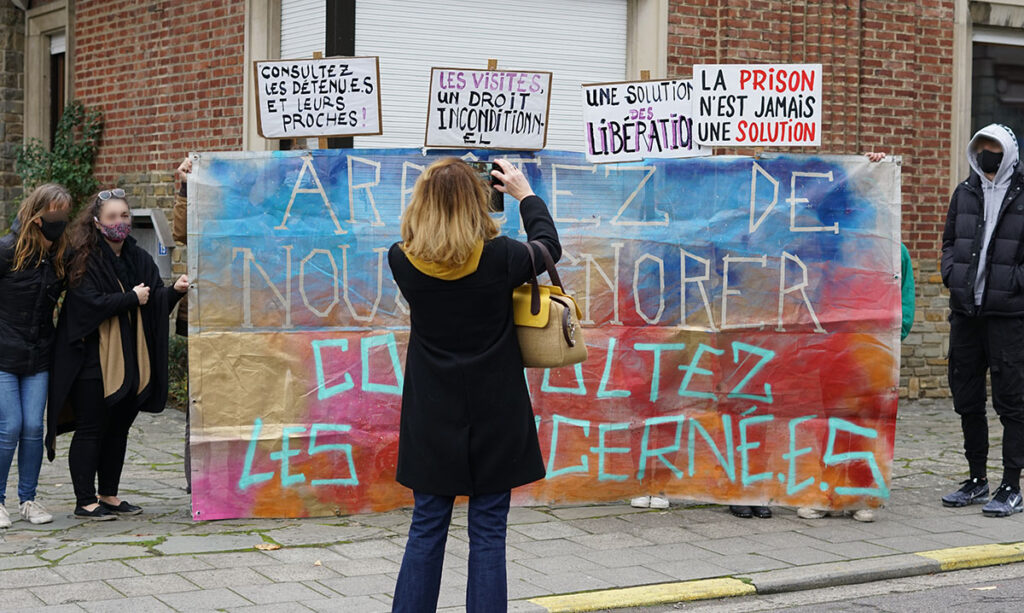 CONSULTEZ
LES DÉTENU.E.S
ET LEURS
PROCHES !
LES VISITES,
UN DROIT
INCONDITIONN-
EL
UNE SOLUTION
DES
LIBÉRATION
LA PRISON
N'EST JAMAIS
UNE SOLUTION
ARR TEZ DE
NOUS IGNORER
CO ULTEZ
LES CERNÉ.E.S